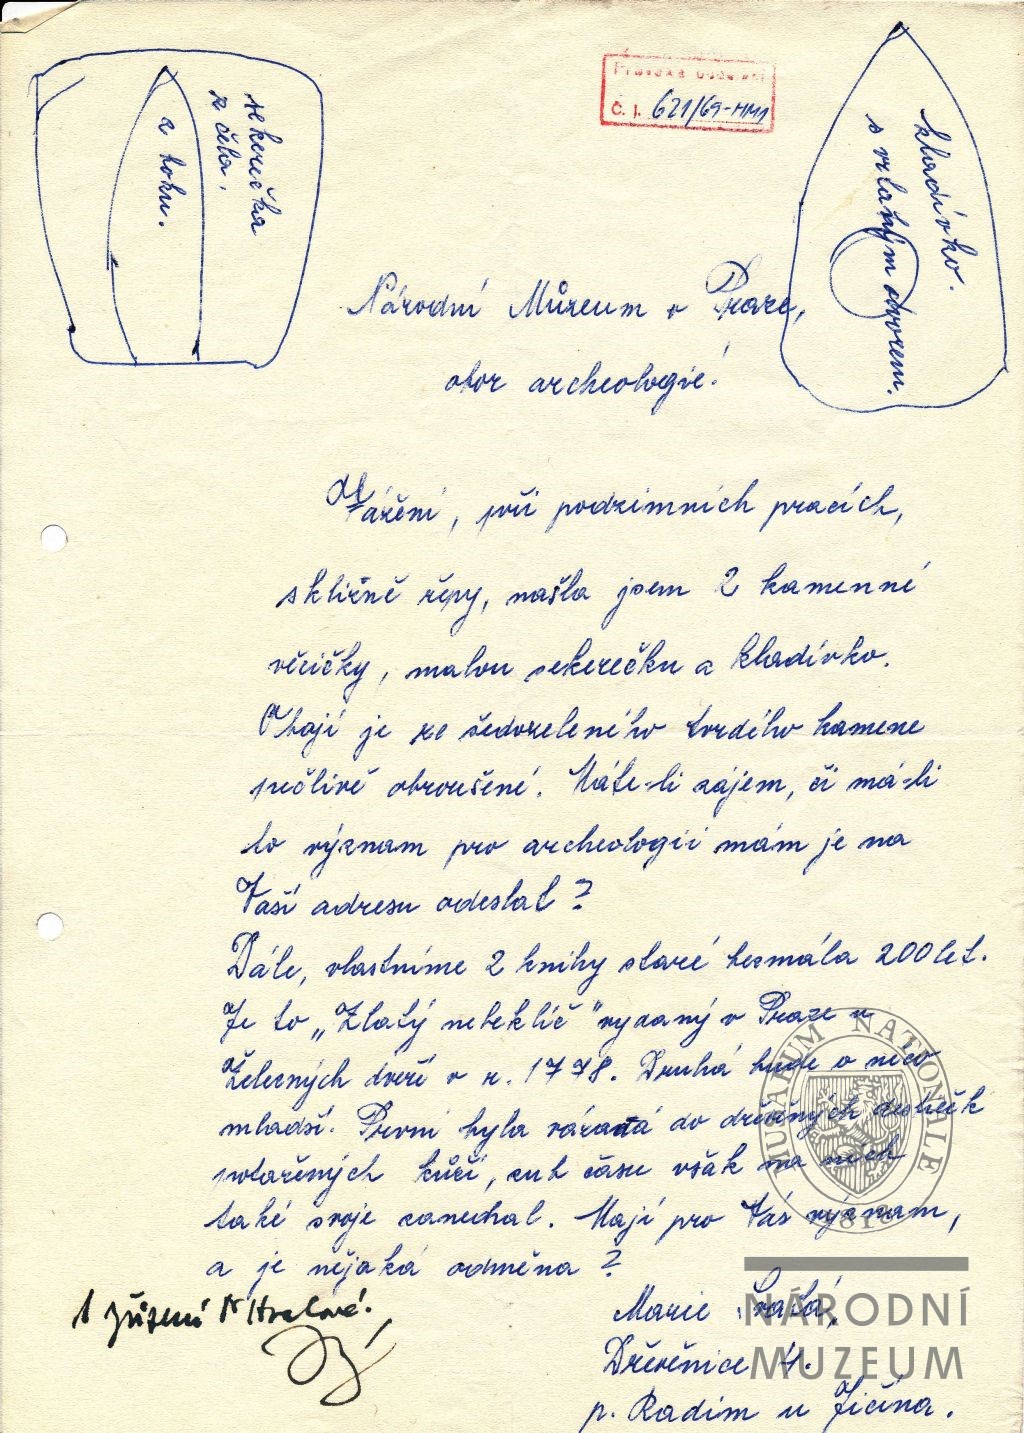 sekerečka
z čela.
z boku.
Pravěké oddělení
Č. j. 621/69-HM1
kladívko.
s vrtaným otvorem.
Národní Můzeum v Praze,
obor archeologie!
Vážení, při podzimních pracích,
sklizně řepy, našla jsem 2 kamenné
věcičky, malou sekerečku a kladívko.
Obojí je ze šedozeleného tvrdého kamene
pečlivě obroušené. Máte-li zájem, či má-li
to význam pro archeologii mám je na
Vaší adresu odeslat?
Dále, vlastníme 2 knihy staré bezmála 200 let.
Je to „Zlatý nebeklíč" vydaný v Praze u
Železných dveří v r. 1778. Druhá bude o něco
mladší. První byla vázaná do dřevěných destiček
potažených kůží, zub času však na nich
také svoje zanechal. Mají pro Vás význam,
a je nějaká odměna?
Marie
Dřevěnice 4.
p. Radim u Jičína.
MUSAEUM NATIONALE
1818
NÁRODNÍ
MUZEUM